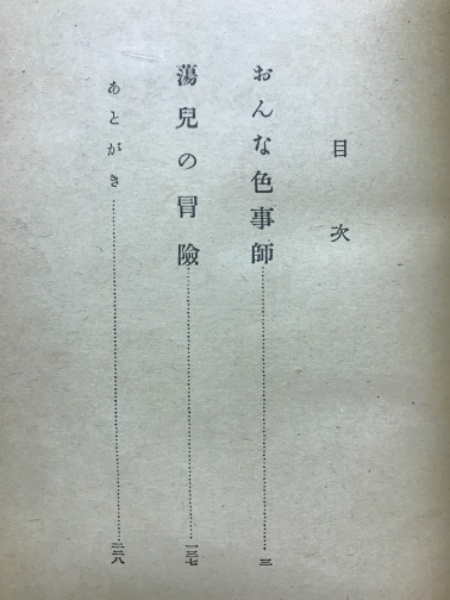 目次
おんな色事師……三
蕩兒の冒險……一三七
あとがき……二二八